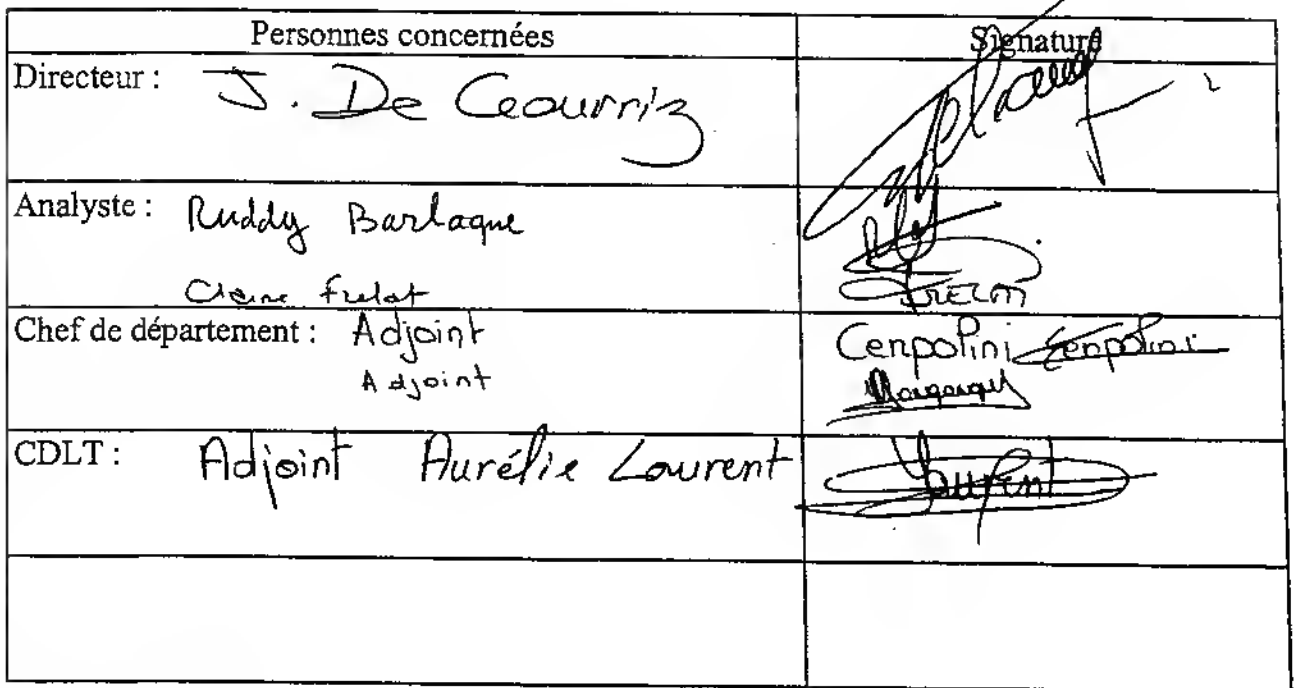 Personnes concernées Signature
Directeur : J. De Ceaurriz
Analyste : Ruddy Barlagne
Claire Frelat
Chef de département : Adjoint Cenpolini Cenpolini
Adjoint
CDLT : Adjoint Aurélie Laurent Laurent